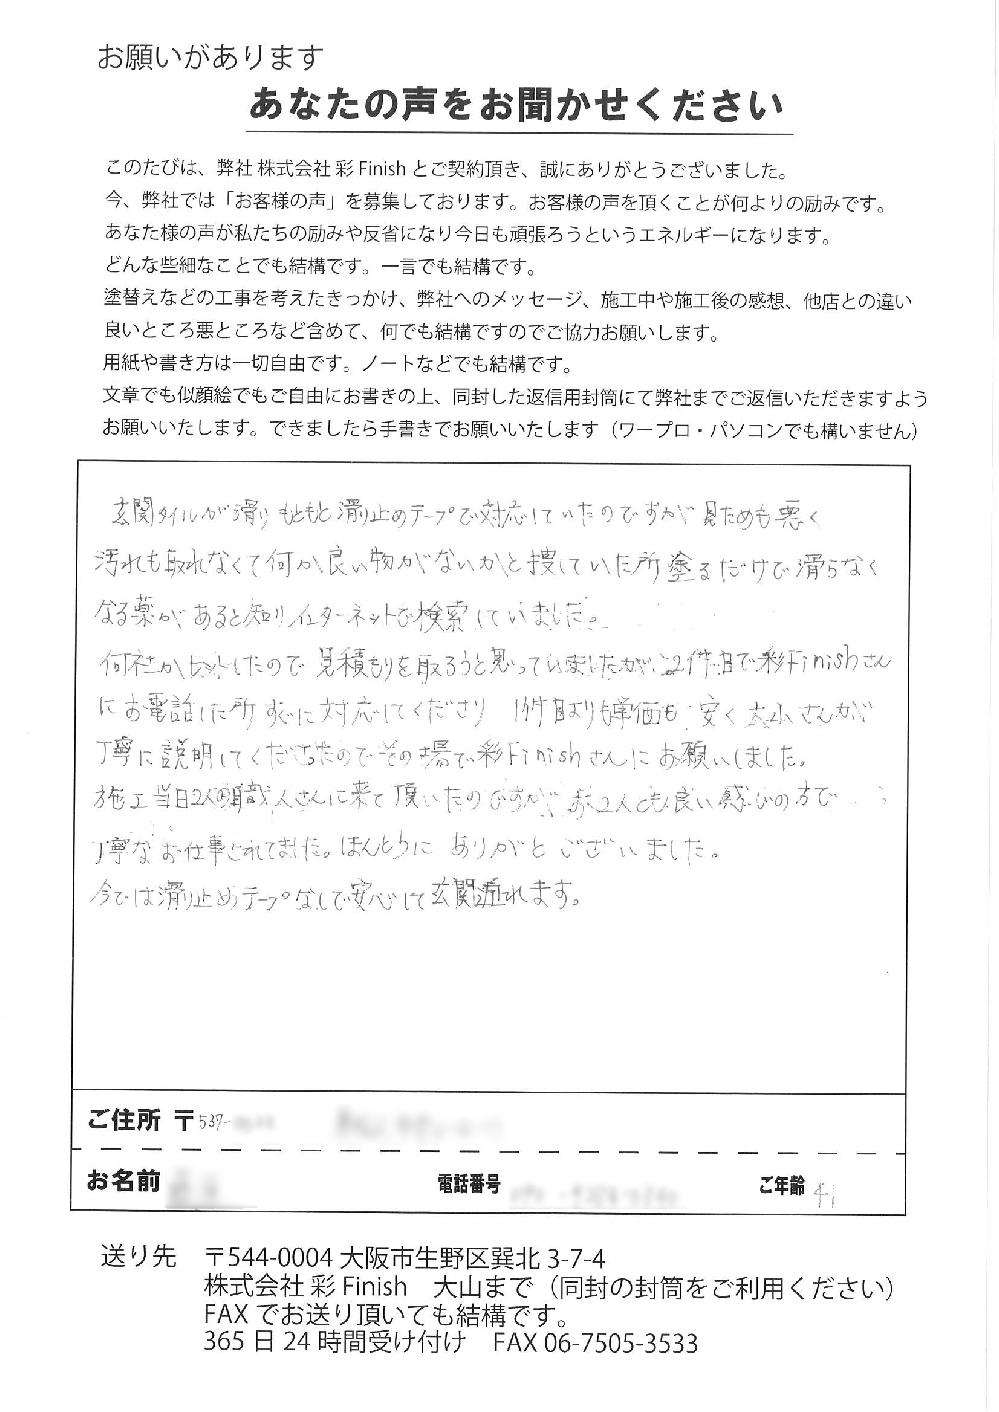 お願いがあります
あなたの声をお聞かせください
このたびは、弊社 株式会社 彩 Finish とご契約頂き、誠にありがとうございました。
今、弊社では「お客様の声」を募集しております。お客様の声を頂くことが何よりの励みです。
あなた様の声が私たちの励みや反省になり今日も頑張ろうというエネルギーになります。
どんな些細なことでも結構です。一言でも結構です。
塗替えなどの工事を考えたきっかけ、弊社へのメッセージ、施工中や施工後の感想、他店との違い
良いところ悪ところなど含めて、何でも結構ですのでご協力お願いします。
用紙や書き方は一切自由です。ノートなどでも結構です。
文章でも似顔絵でもご自由にお書きの上、同封した返信用封筒にて弊社までご返信いただきますよう
お願いいたします。できましたら手書きでお願いいたします（ワープロ・パソコンでも構いません）
玄関タイルが滑りもともと滑り止めテープで対応していたのですが見ためも悪く
汚れも取れなくて何か良い物がないかと捜していた所塗るだけで滑らなく
なる薬があると知りインターネットで検索していました。
何社かヒットしたので見積もりを取ろうと思っていましたが、2件目で彩Finishさん
にお電話した所すぐに対応してくださり 1件目よりも単価も安く大山さんが
丁寧に説明してくださったのでその場で彩Finishさんにお願いしました。
施工当日2人の職人さんに来て頂いたのですが、お2人とも良い感じの方で
丁寧なお仕事されてました。ほんとうにありがとございました。
今では滑り止めテープなしで安心して玄関通れます。
ご住所 〒537-
お名前 電話番号 ご年齢 41
送り先 〒544-0004 大阪市生野区巽北 3-7-4
株式会社 彩 Finish 大山まで（同封の封筒をご利用ください）
FAX でお送り頂いても結構です。
365 日 24 時間受け付け FAX 06-7505-3533